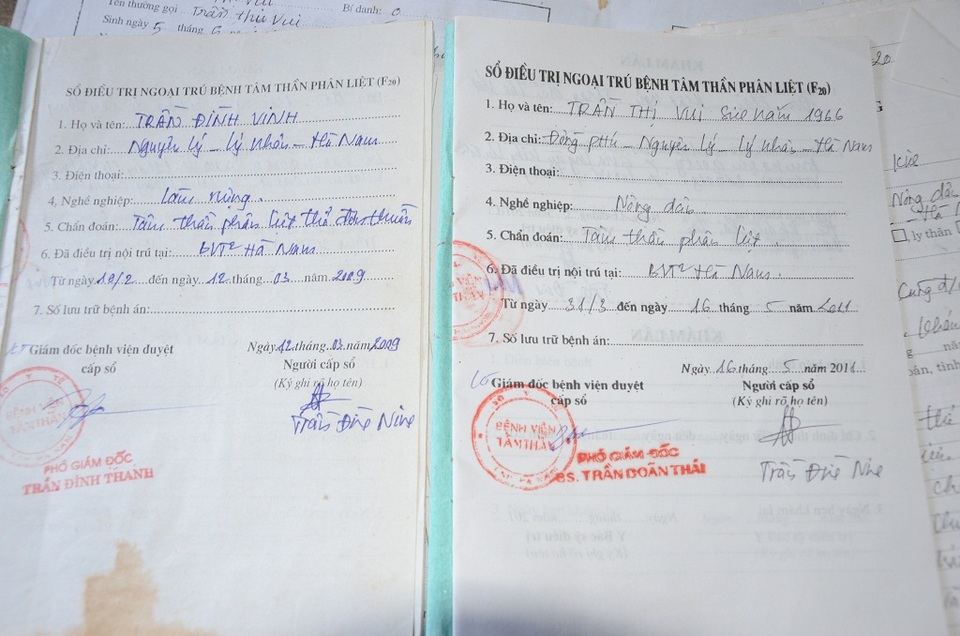 Tên thường gọi Trần Thị Vui Bí danh: 0
Sinh ngày 5 tháng 6
SỔ ĐIỀU TRỊ NGOẠI TRÚ BỆNH TÂM THẦN PHÂN LIỆT (F20)
1. Họ và tên: TRẦN ĐÌNH VINH
2. Địa chỉ: Nguyên Lý - Lý Nhân - Hà Nam
3. Điện thoại:
4. Nghề nghiệp: Làm ruộng.
5. Chẩn đoán: Tâm thần phân liệt thể đơn thuần
6. Đã điều trị nội trú tại: BVT² Hà Nam
Từ ngày 10/2 đến ngày 12 tháng 03 năm 2009
7. Số lưu trữ bệnh án:
Ngày 12 tháng 03 năm 2009
Giám đốc bệnh viện duyệt
cấp sổ
Người cấp sổ
(Ký ghi rõ họ tên)
Trần Đình
PHÓ GIÁM ĐỐC
TRẦN ĐÌNH THANH
SỔ ĐIỀU TRỊ NGOẠI TRÚ BỆNH TÂM THẦN PHÂN LIỆT (F20)
1. Họ và tên: TRẦN THỊ VUI Sinh năm 1966
2. Địa chỉ: Đồng Phú - Nguyên Lý - Lý Nhân - Hà Nam
3. Điện thoại:
4. Nghề nghiệp: Nông dân
5. Chẩn đoán: Tâm thần phân liệt.
6. Đã điều trị nội trú tại: BVT² Hà Nam.
Từ ngày 31/3 đến ngày 16 tháng 5 năm 2011
7. Số lưu trữ bệnh án:
Ngày 16 tháng 5 năm 2011
Giám đốc bệnh viện duyệt
cấp sổ
Người cấp sổ
(Ký ghi rõ họ tên)
BỆNH VIỆN
TÂM THẦN
PHÓ GIÁM ĐỐC
BS. TRẦN DOÃN THÁI
Trần Đình
Nông dân
ly thân